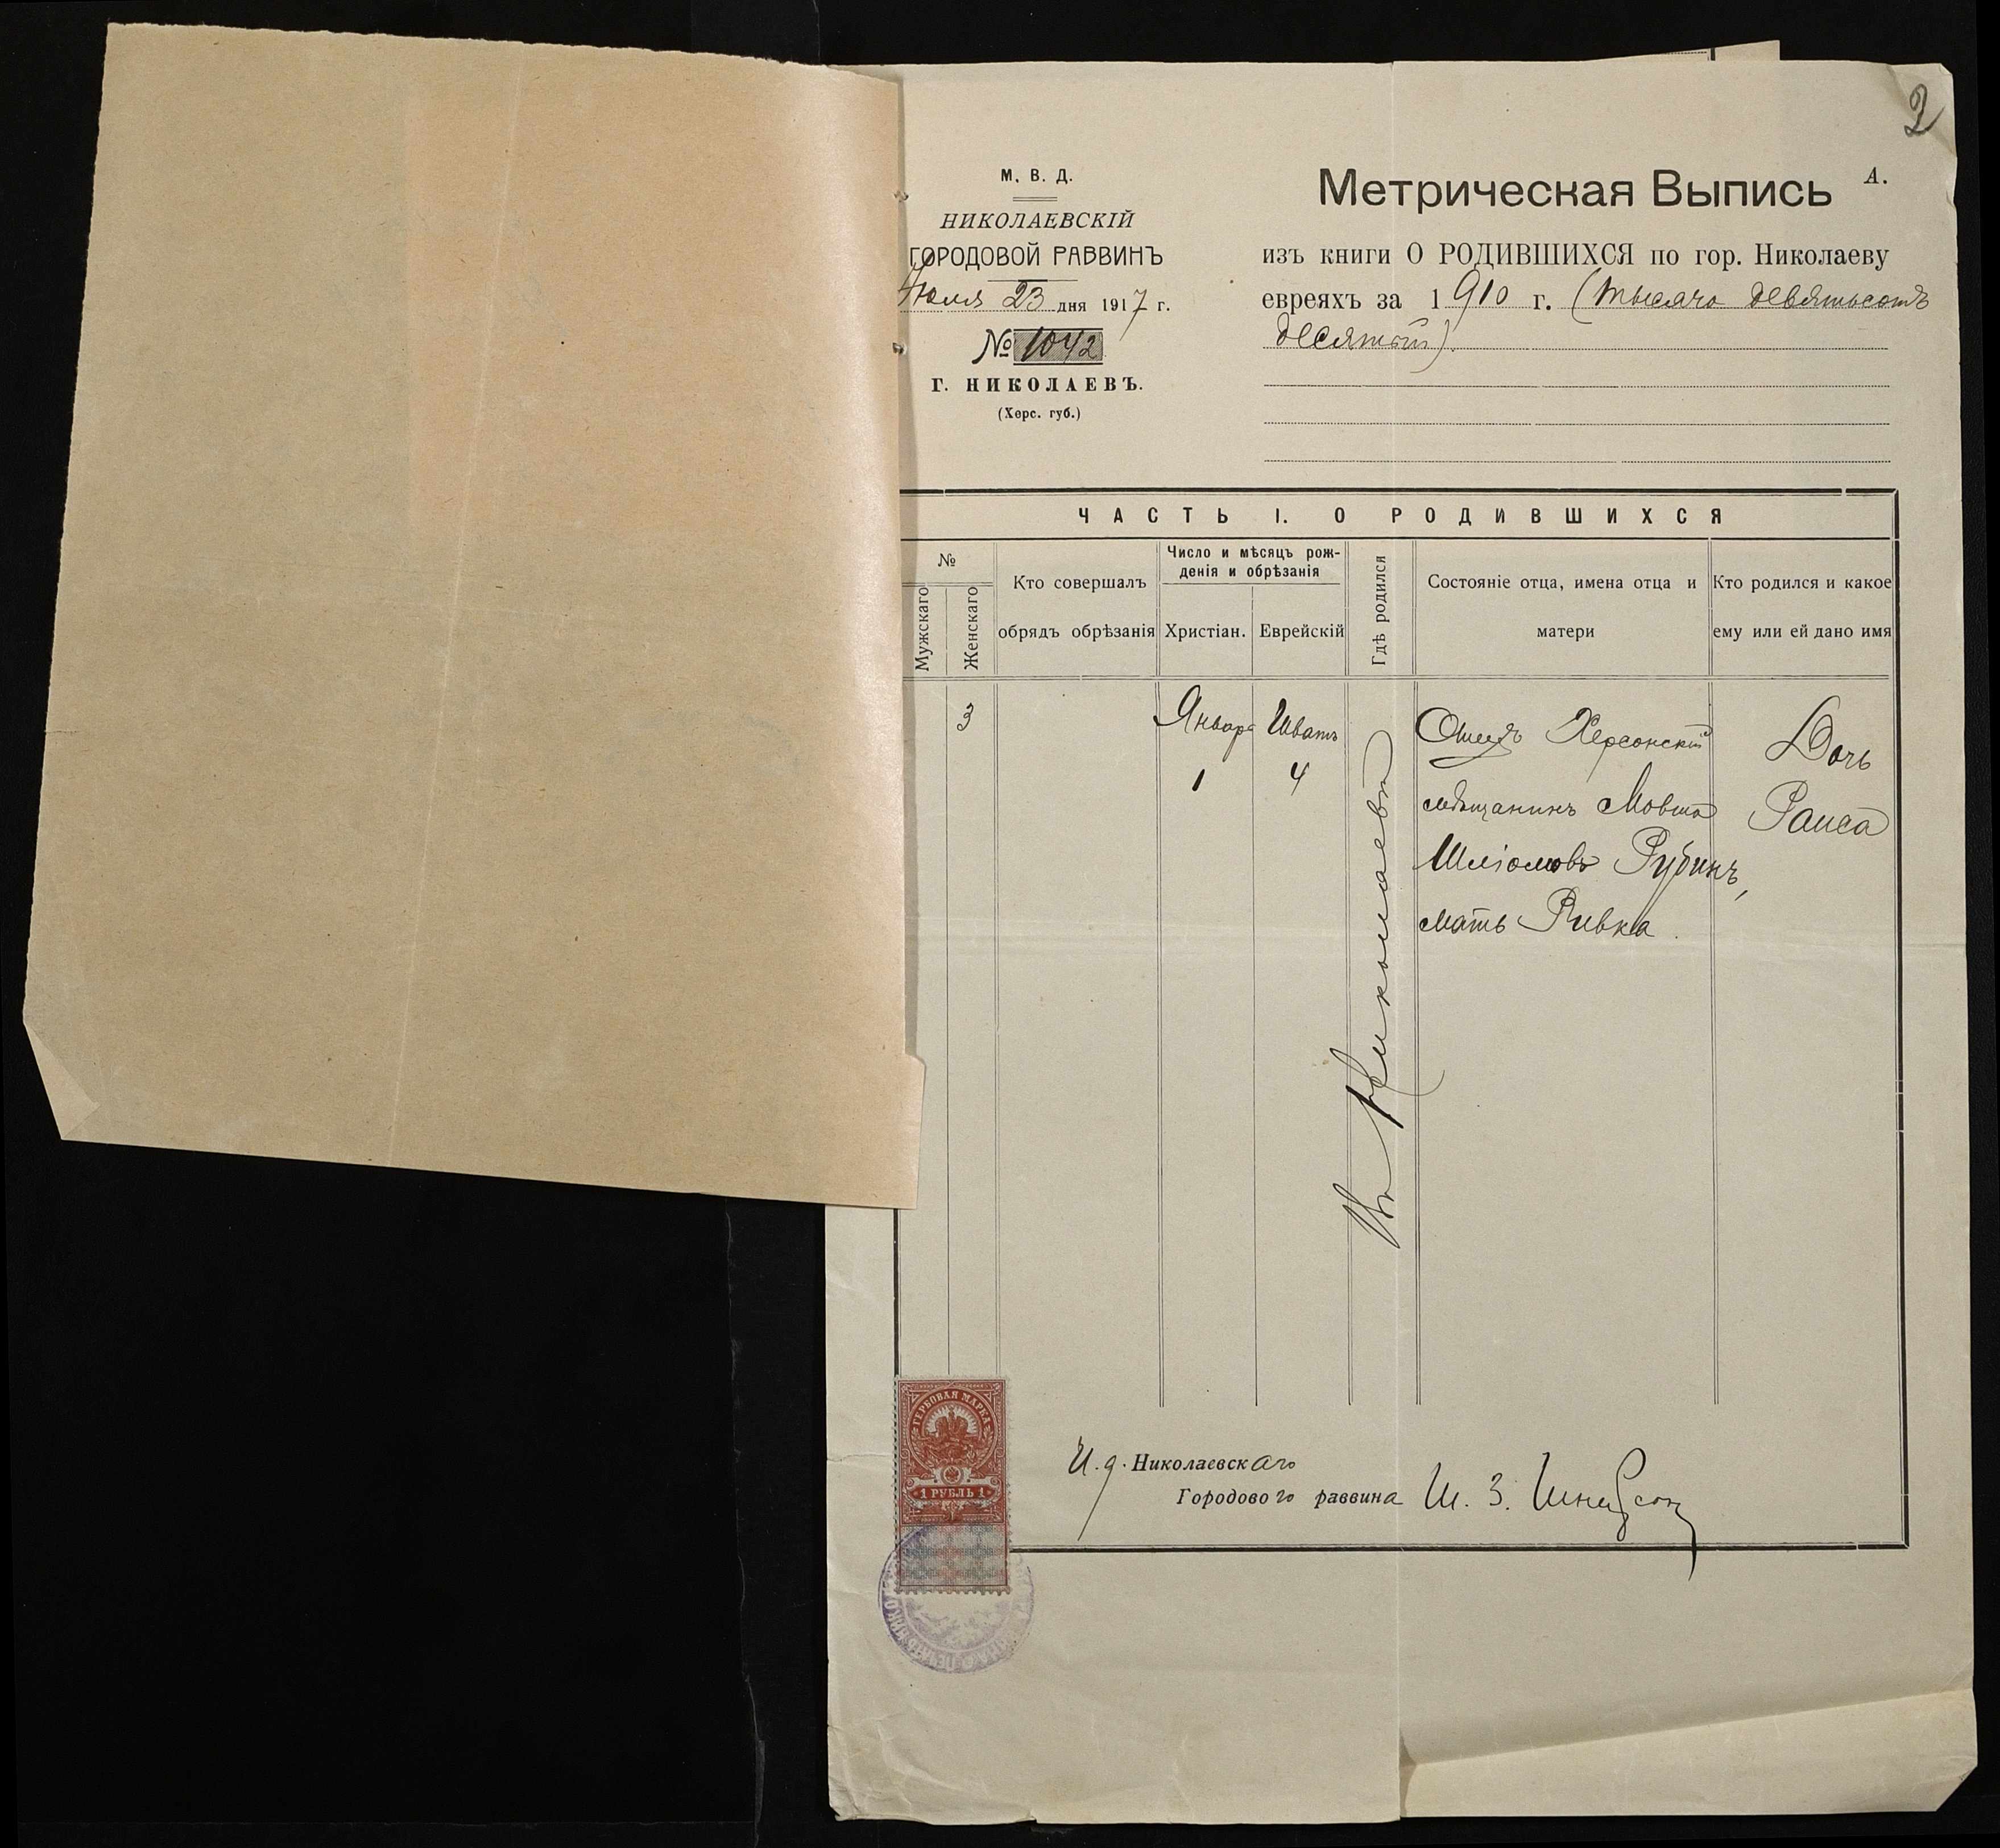 2
М. В. Д.
НИКОЛАЕВСКІЙ
ГОРОДОВОЙ РАВВИНЪ
Іюля 23 дня 1917 г.
№ 1042
Г. НИКОЛАЕВЪ.
(Херс. губ.)
Метрическая Выпись А.
изъ книги О РОДИВШИХСЯ по гор. Николаеву
евреяхъ за 1910 г. (тысяча девятьсотъ
десятый).
ЧАСТЬ I. О РОДИВШИХСЯ
№
Мужскаго
Женскаго
Кто совершалъ
обрядъ обрѣзанія
Число и мѣсяцъ рож-
денія и обрѣзанія
Христіан.
Еврейскій
Гдѣ родился
Состояніе отца, имена отца и
матери
Кто родился и какое
ему или ей дано имя
3
Январь
1
Шватъ
4
Въ Николаевѣ
Отецъ Херсонскій
мѣщанинъ Мовша
Шліомовъ Рубинъ,
мать Ривка.
Дочь
Раиса
ГЕРБОВАЯ МАРКА
1 РУБЛЬ 1
И. д. Николаевскаго
Городового раввина Ш. З. Шнеерсон